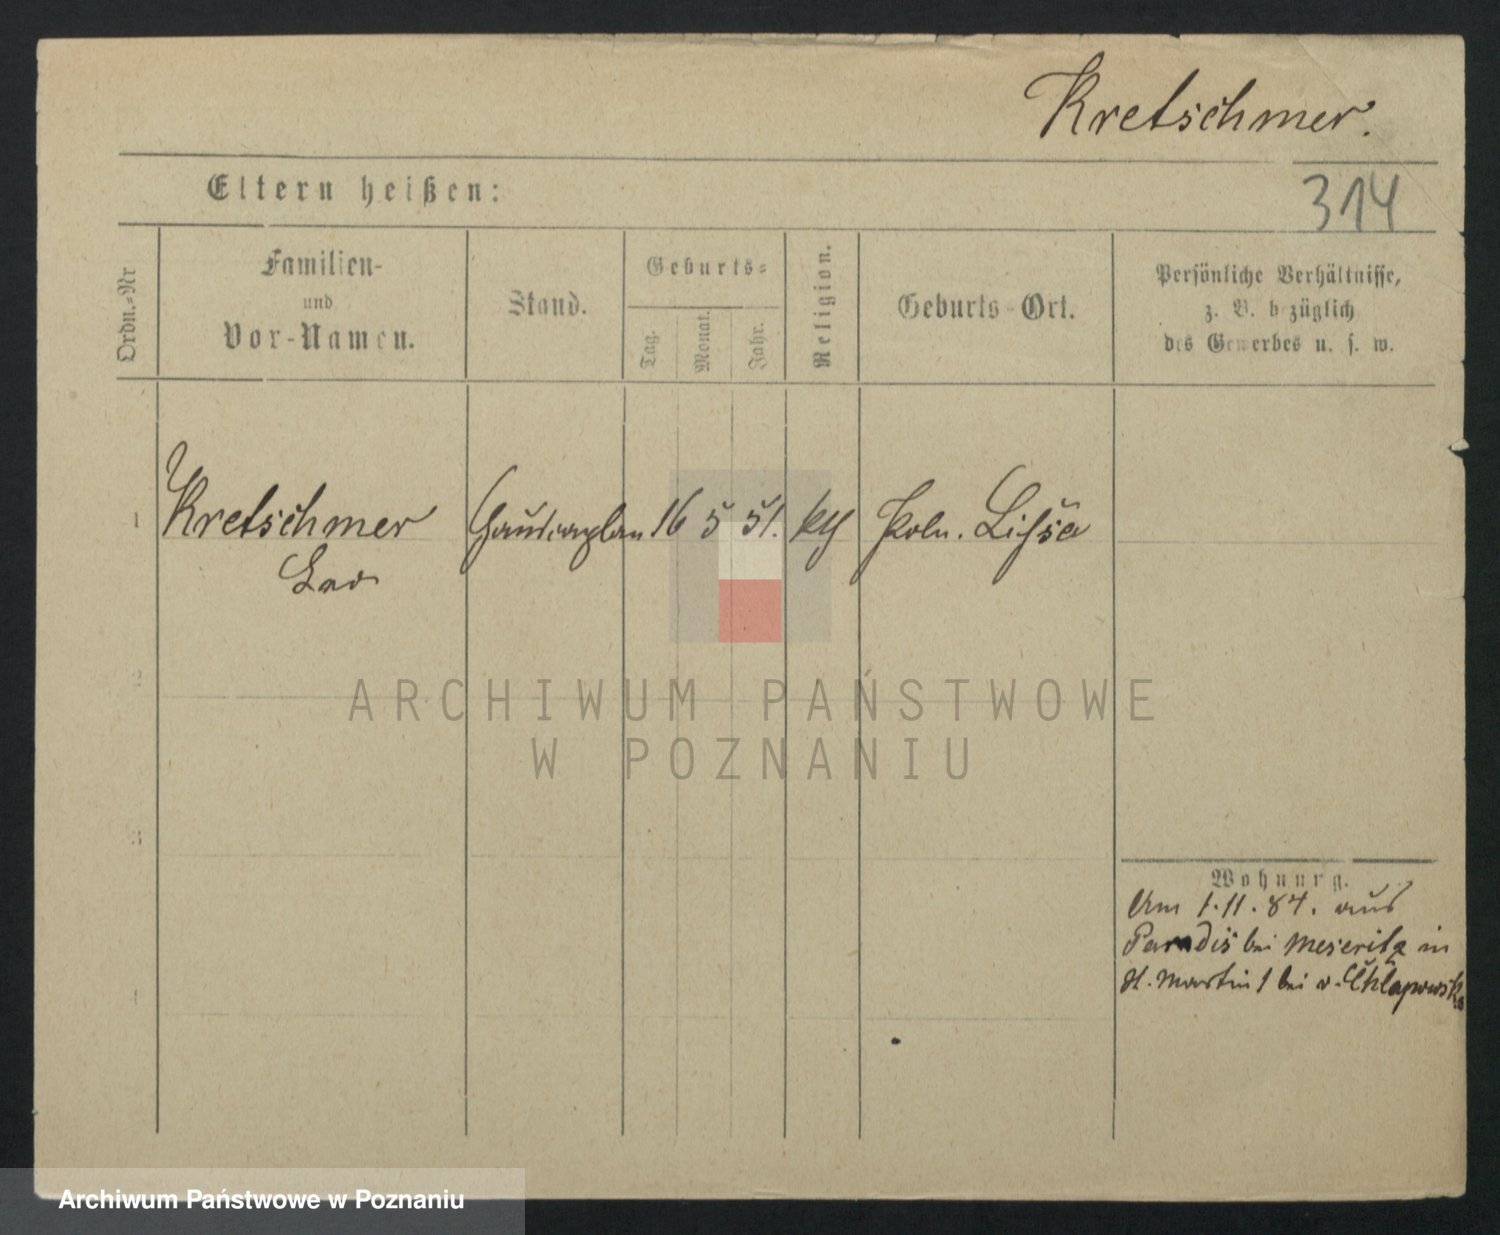 Kretschmer.
Eltern heißen:
314
Ordn.-Nr
Familien-
und
Vor-Namen.
Stand.
Geburts-
Tag.
Monat.
Jahr.
Religion.
Geburts-Ort.
Persönliche Verhältnisse,
z. B. bezüglich
des Gewerbes u. s. w.
1 Kretschmer 16 5 51. kth Poln. Lissa
Leo
2
3
Wohnung.
Am 1.11.87. aus
Paradis bei Meseritz in
St. Martin 1 bei v. Chlapowski
ARCHIWUM PAŃSTWOWE
W POZNANIU
Archiwum Państwowe w Poznaniu